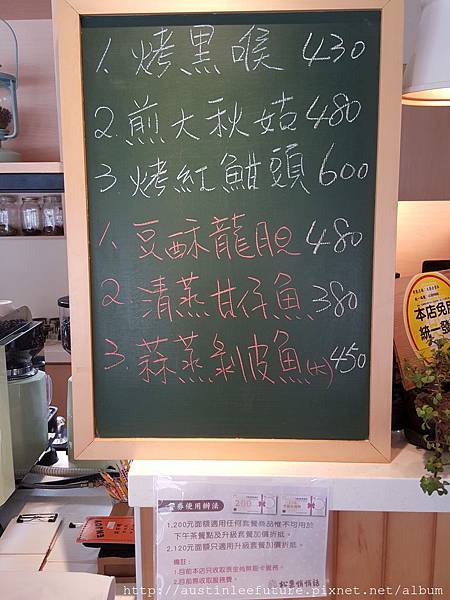 1. 烤黑喉 430
2. 煎大秋姑 480
3. 烤紅魽頭 600
1. 豆酥龍胆 480
2. 清蒸甘仔魚 380
3. 蒜蒸剝皮魚(大) 450
本店免用
統一發
餐券使用辦法
200
1.200元面額適用任何套餐商品惟不可用於
下午茶餐點及升級套餐加價折抵。
2.120元面額只適用升級套餐加價折抵。
備註:
1.目前本店只收取現金尚無刷卡服務。
2.目前無收取服務費。
http://austinleefuture.pixnet.net/album